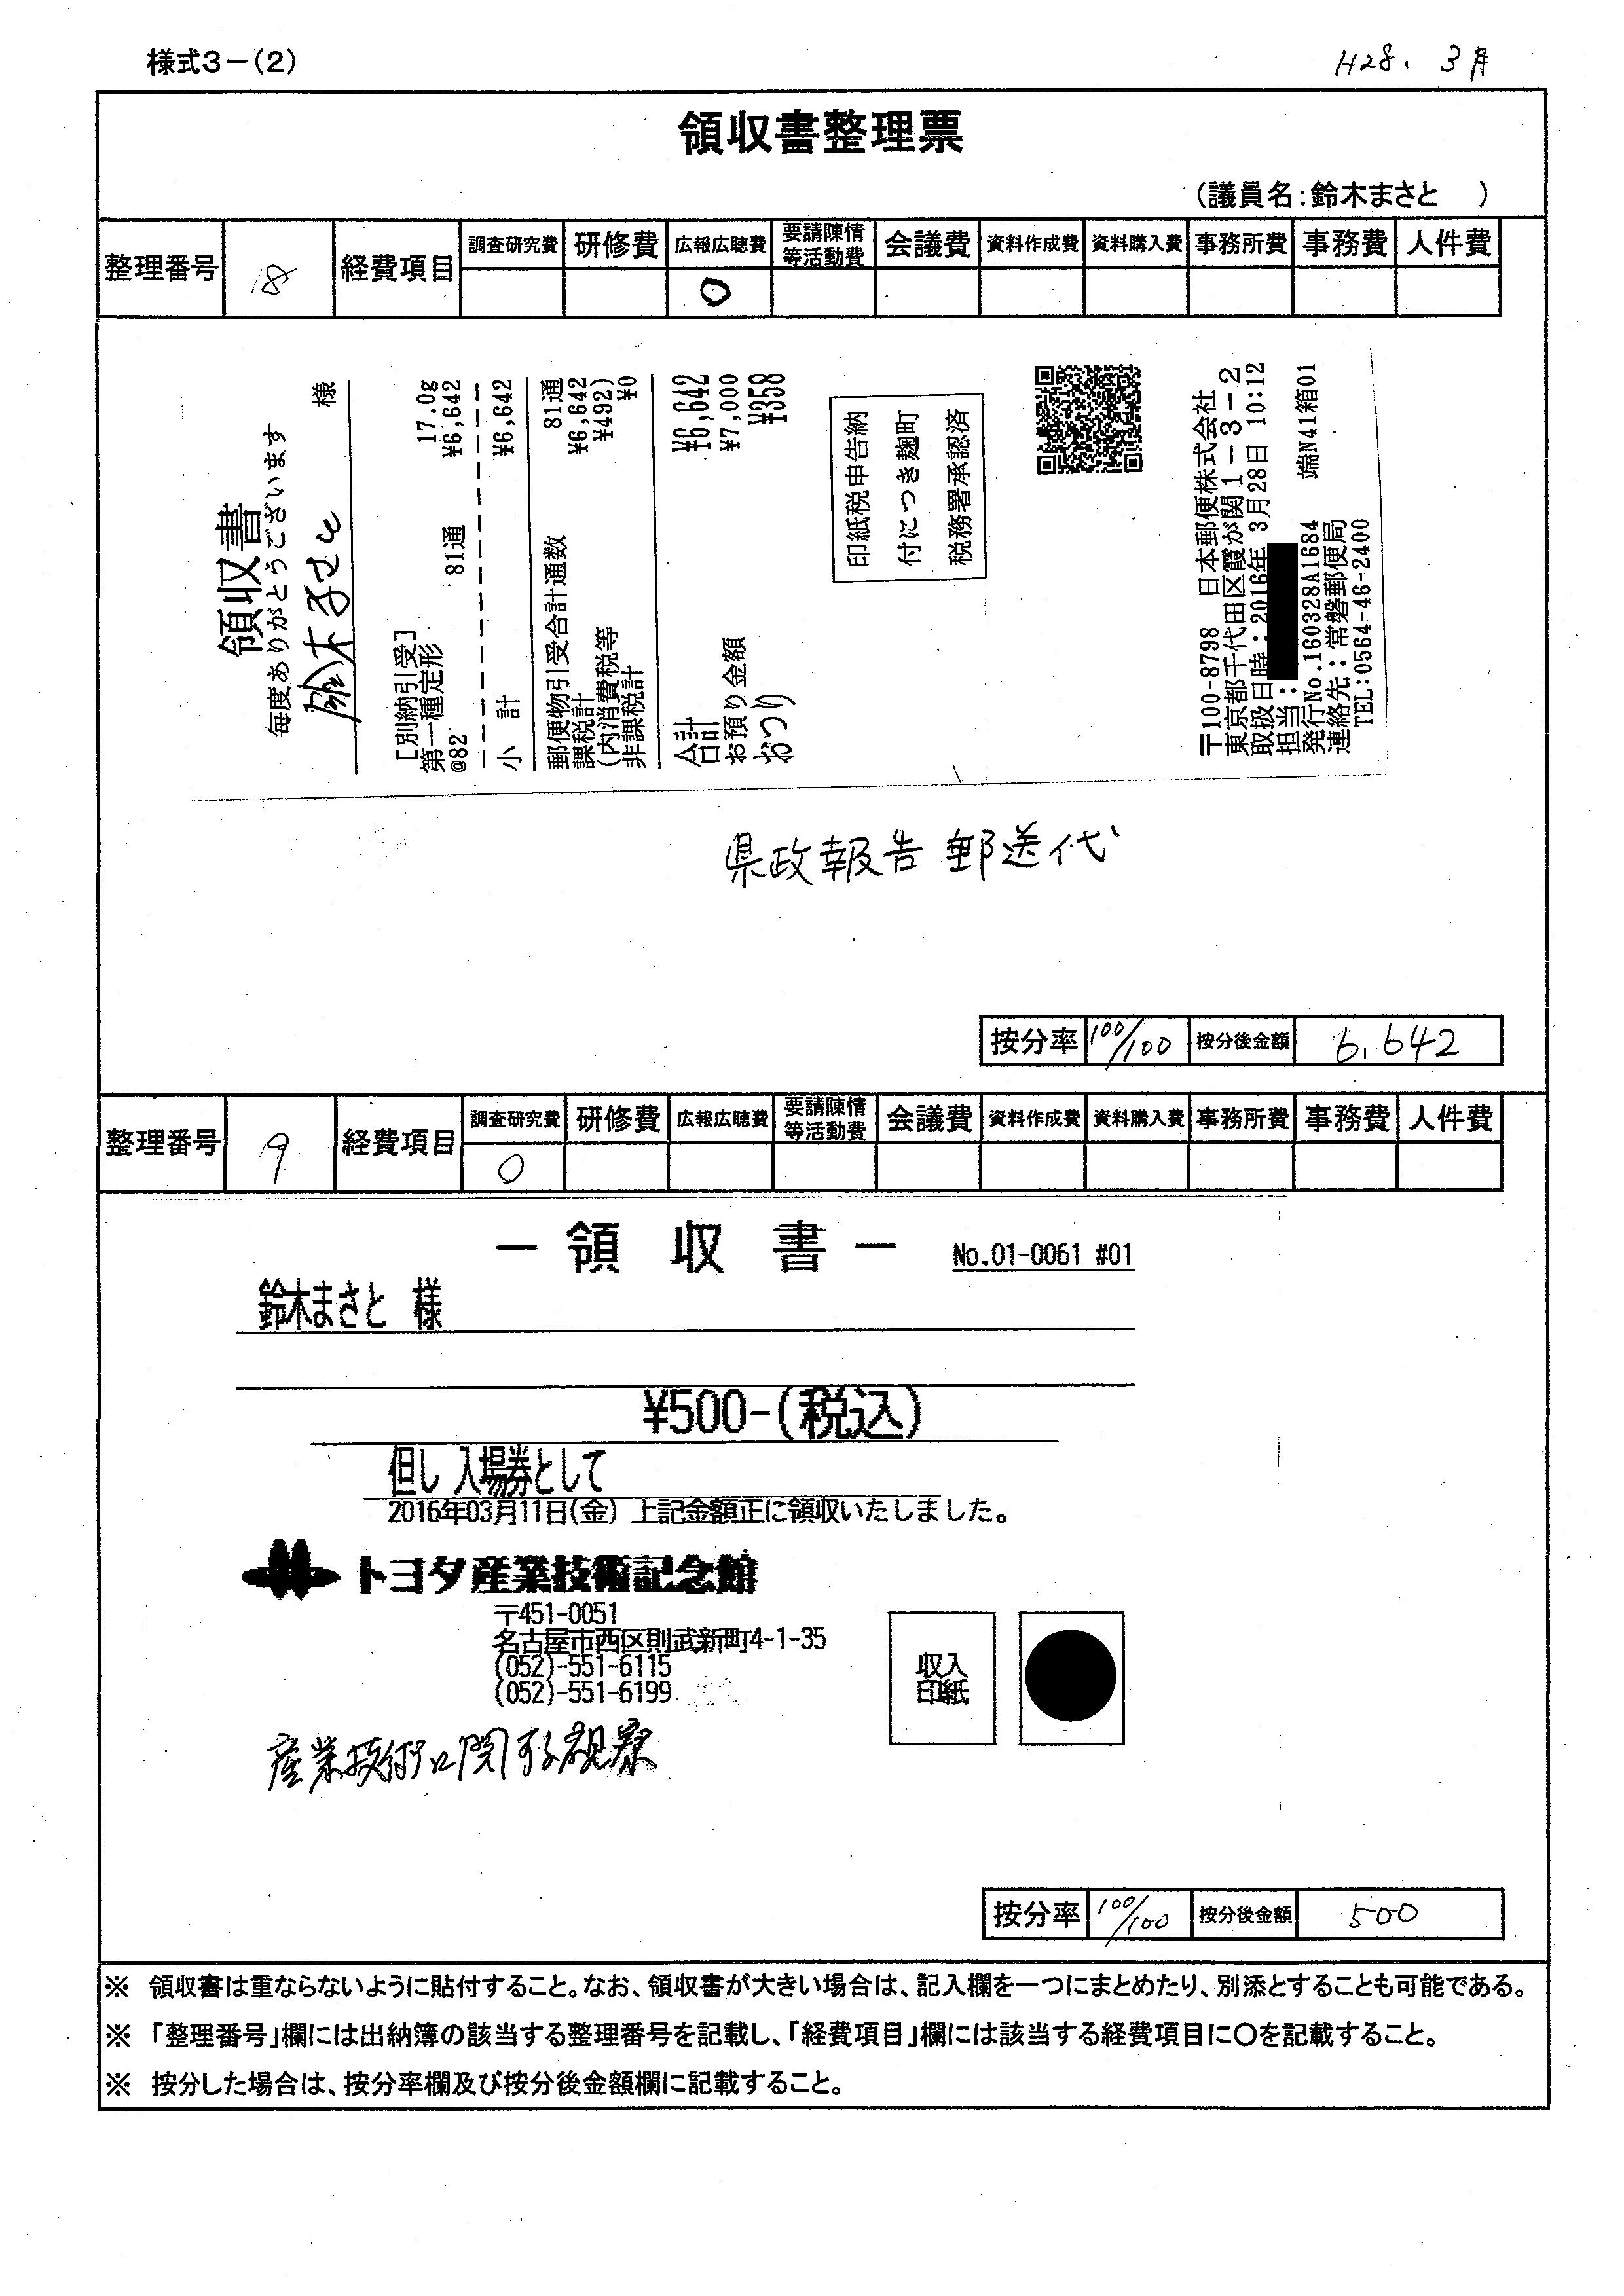 様式3－(2)
H28. 3月
領収書整理票
(議員名:鈴木まさと )
整理番号 18 経費項目 調査研究費 研修費 広報広聴費 要請陳情等活動費 会議費 資料作成費 資料購入費 事務所費 事務費 人件費
○
領収書
毎度ありがとうございます
鈴木まさと 様
[別納引受]
第一種定形 17.0g
@82 81通 ¥6,642
小 計 ¥6,642
郵便物引受合計通数 81通
課税計 ¥6,642
(内消費税等 ¥492)
非課税計 ¥0
合計 ¥6,642
お預り金額 ¥7,000
おつり ¥358
印紙税申告納
付につき麹町
税務署承認済
〒100-8798 日本郵便株式会社
東京都千代田区霞が関1-3-2
取扱日時:2016年 3月28日 10:12
担当:
発行No.160328A1684 端N41箱01
連絡先:常磐郵便局
TEL:0564-46-2400
県政報告 郵送代
按分率 100/100 按分後金額 6,642
整理番号 9 経費項目 調査研究費 研修費 広報広聴費 要請陳情等活動費 会議費 資料作成費 資料購入費 事務所費 事務費 人件費
○
－ 領 収 書 － No.01-0061 #01
鈴木まさと 様
¥500-(税込)
但し 入場券として
2016年03月11日(金) 上記金額正に領収いたしました。
トヨタ産業技術記念館
〒451-0051
名古屋市西区則武新町4-1-35
(052)-551-6115
(052)-551-6199
収入
印紙
産業技術に関する視察
按分率 100/100 按分後金額 500
※ 領収書は重ならないように貼付すること。なお、領収書が大きい場合は、記入欄を一つにまとめたり、別添とすることも可能である。
※ 「整理番号」欄には出納簿の該当する整理番号を記載し、「経費項目」欄には該当する経費項目に○を記載すること。
※ 按分した場合は、按分率欄及び按分後金額欄に記載すること。